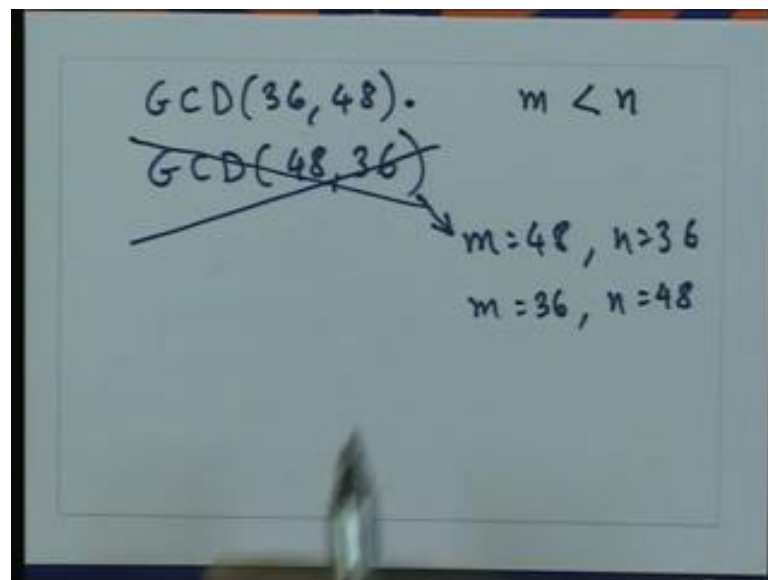 GCD(36,48). m < n
GCD(48,36)
m=48, n=36
m=36, n=48